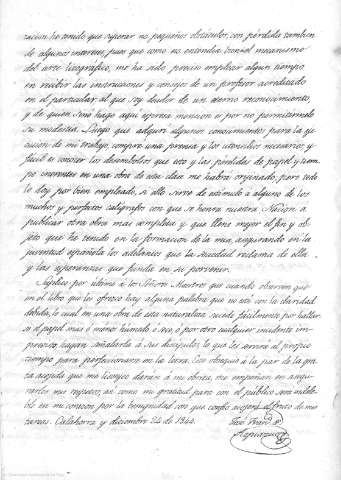 racion he tenido que superar no pequeños obstáculos, con pérdida tambien
de algunos intereses, pues que como no entendia bien el mecanismo
del arte litográfico, me ha sido preciso emplear algun tiempo
en recibir las instrucciones y consejos de un profesor acreditado
en el particular al que soy deudor de un eterno reconocimiento,
y de quien sino hago aqui espresa mencion es por no permitírmelo
su modestia. Luego que adquirí algunos conocimientos para la eje
cucion de mi trabajo, compré una prensa y los utensilios necesarios; y
facil es conocer los desembolsos que esto y las pérdidas de papel y tiem
po en una obra de esta clase me habrá orijinado, pero todo
lo doy por bien empleado, si ello sirve de estímulo á alguno de los
muchos y perfectos calígrafos con que se honra nuestra Nacion á
publicar otra obra mas completa y que llene mejor el fin y ob
jeto que he tenido en la formacion de la mia, asegurando en la
juventud española los adelantos que la sociedad reclama de ella
y las esperanzas que funda en su porvenir.
Suplico por último á los Señores Maestros que cuando observen que
en el libro que les ofrezco hay alguna palabra que no esté con la claridad
debida, lo cual en una obra de esta naturaleza sucede fácilmente por hallar
se el papel mas ó menos húmedo ó seco, ó por otro cualquier incidente im
previsto, hagan señalarla á sus discípulos, lo que les servirá al propio
tiempo para perfeccionarse en la letra. Este obsequio á la par de la gra
ta acojida que me lisonjeo darán á mi obrita, me empeñan en asegu
rarles mis respetos, asi como mi gratitud para con el público será indele
ble en mi corazon por la benignidad con que confio acojerá el fruto de mis
tareas. Calahorra y diciembre 24 de 1844.